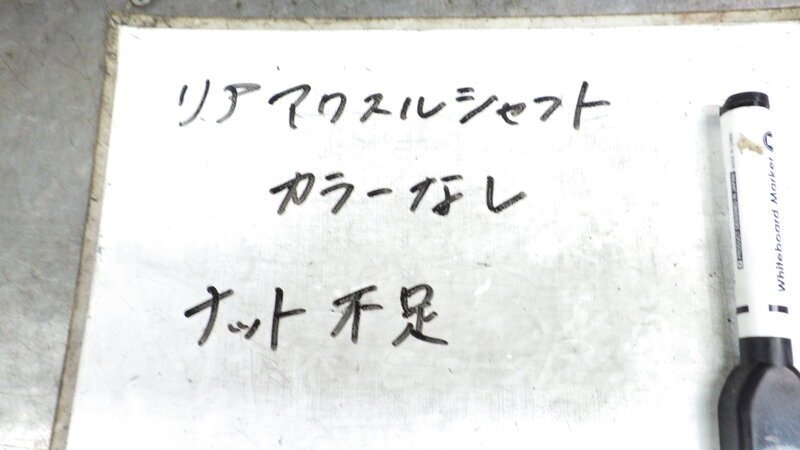 リア アクスルシャフト
カラーなし
ナット 不足
Whiteboard Marker